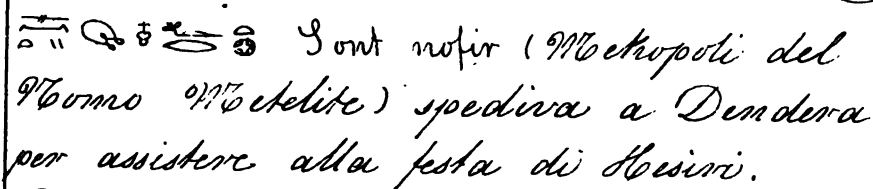 Sont nofir (Metropoli del
Nomo Metelite) spediva a Dendera
per assistere alla festa di Hesiri.